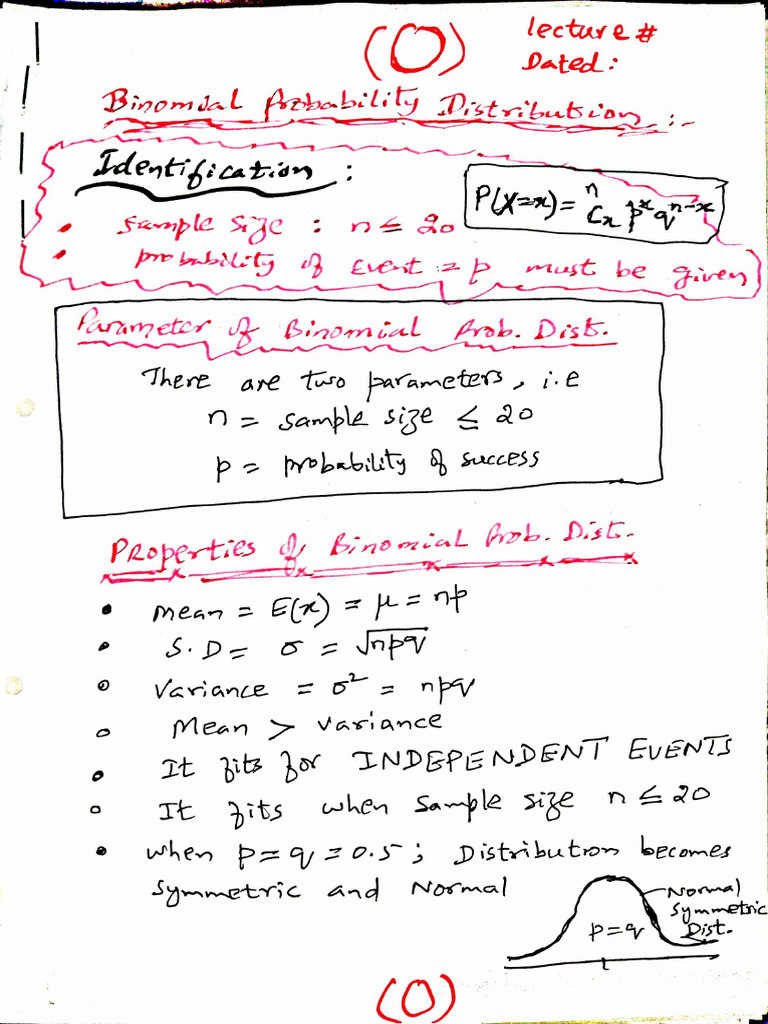 (0)
lecture #
Dated:
Binomial Probability Distribution:-
Identification:
P(X=x) = ⁿCₓ pˣ qⁿ⁻ˣ
• Sample Size : n ≤ 20
• probability of Event = p must be given
Parameter of Binomial Prob. Dist.
There are two parameters, i.e
n = sample size ≤ 20
p = probability of success
Properties of Binomial Prob. Dist.
• Mean = E(x) = μ = np
• S.D = σ = √npq
• Variance = σ² = npq
• Mean > variance
• It fits for INDEPENDENT EVENTS
• It fits when sample size n ≤ 20
• when p = q = 0.5 ; Distribution becomes
symmetric and Normal
Normal
Symmetric
Dist.
p = q
(0)